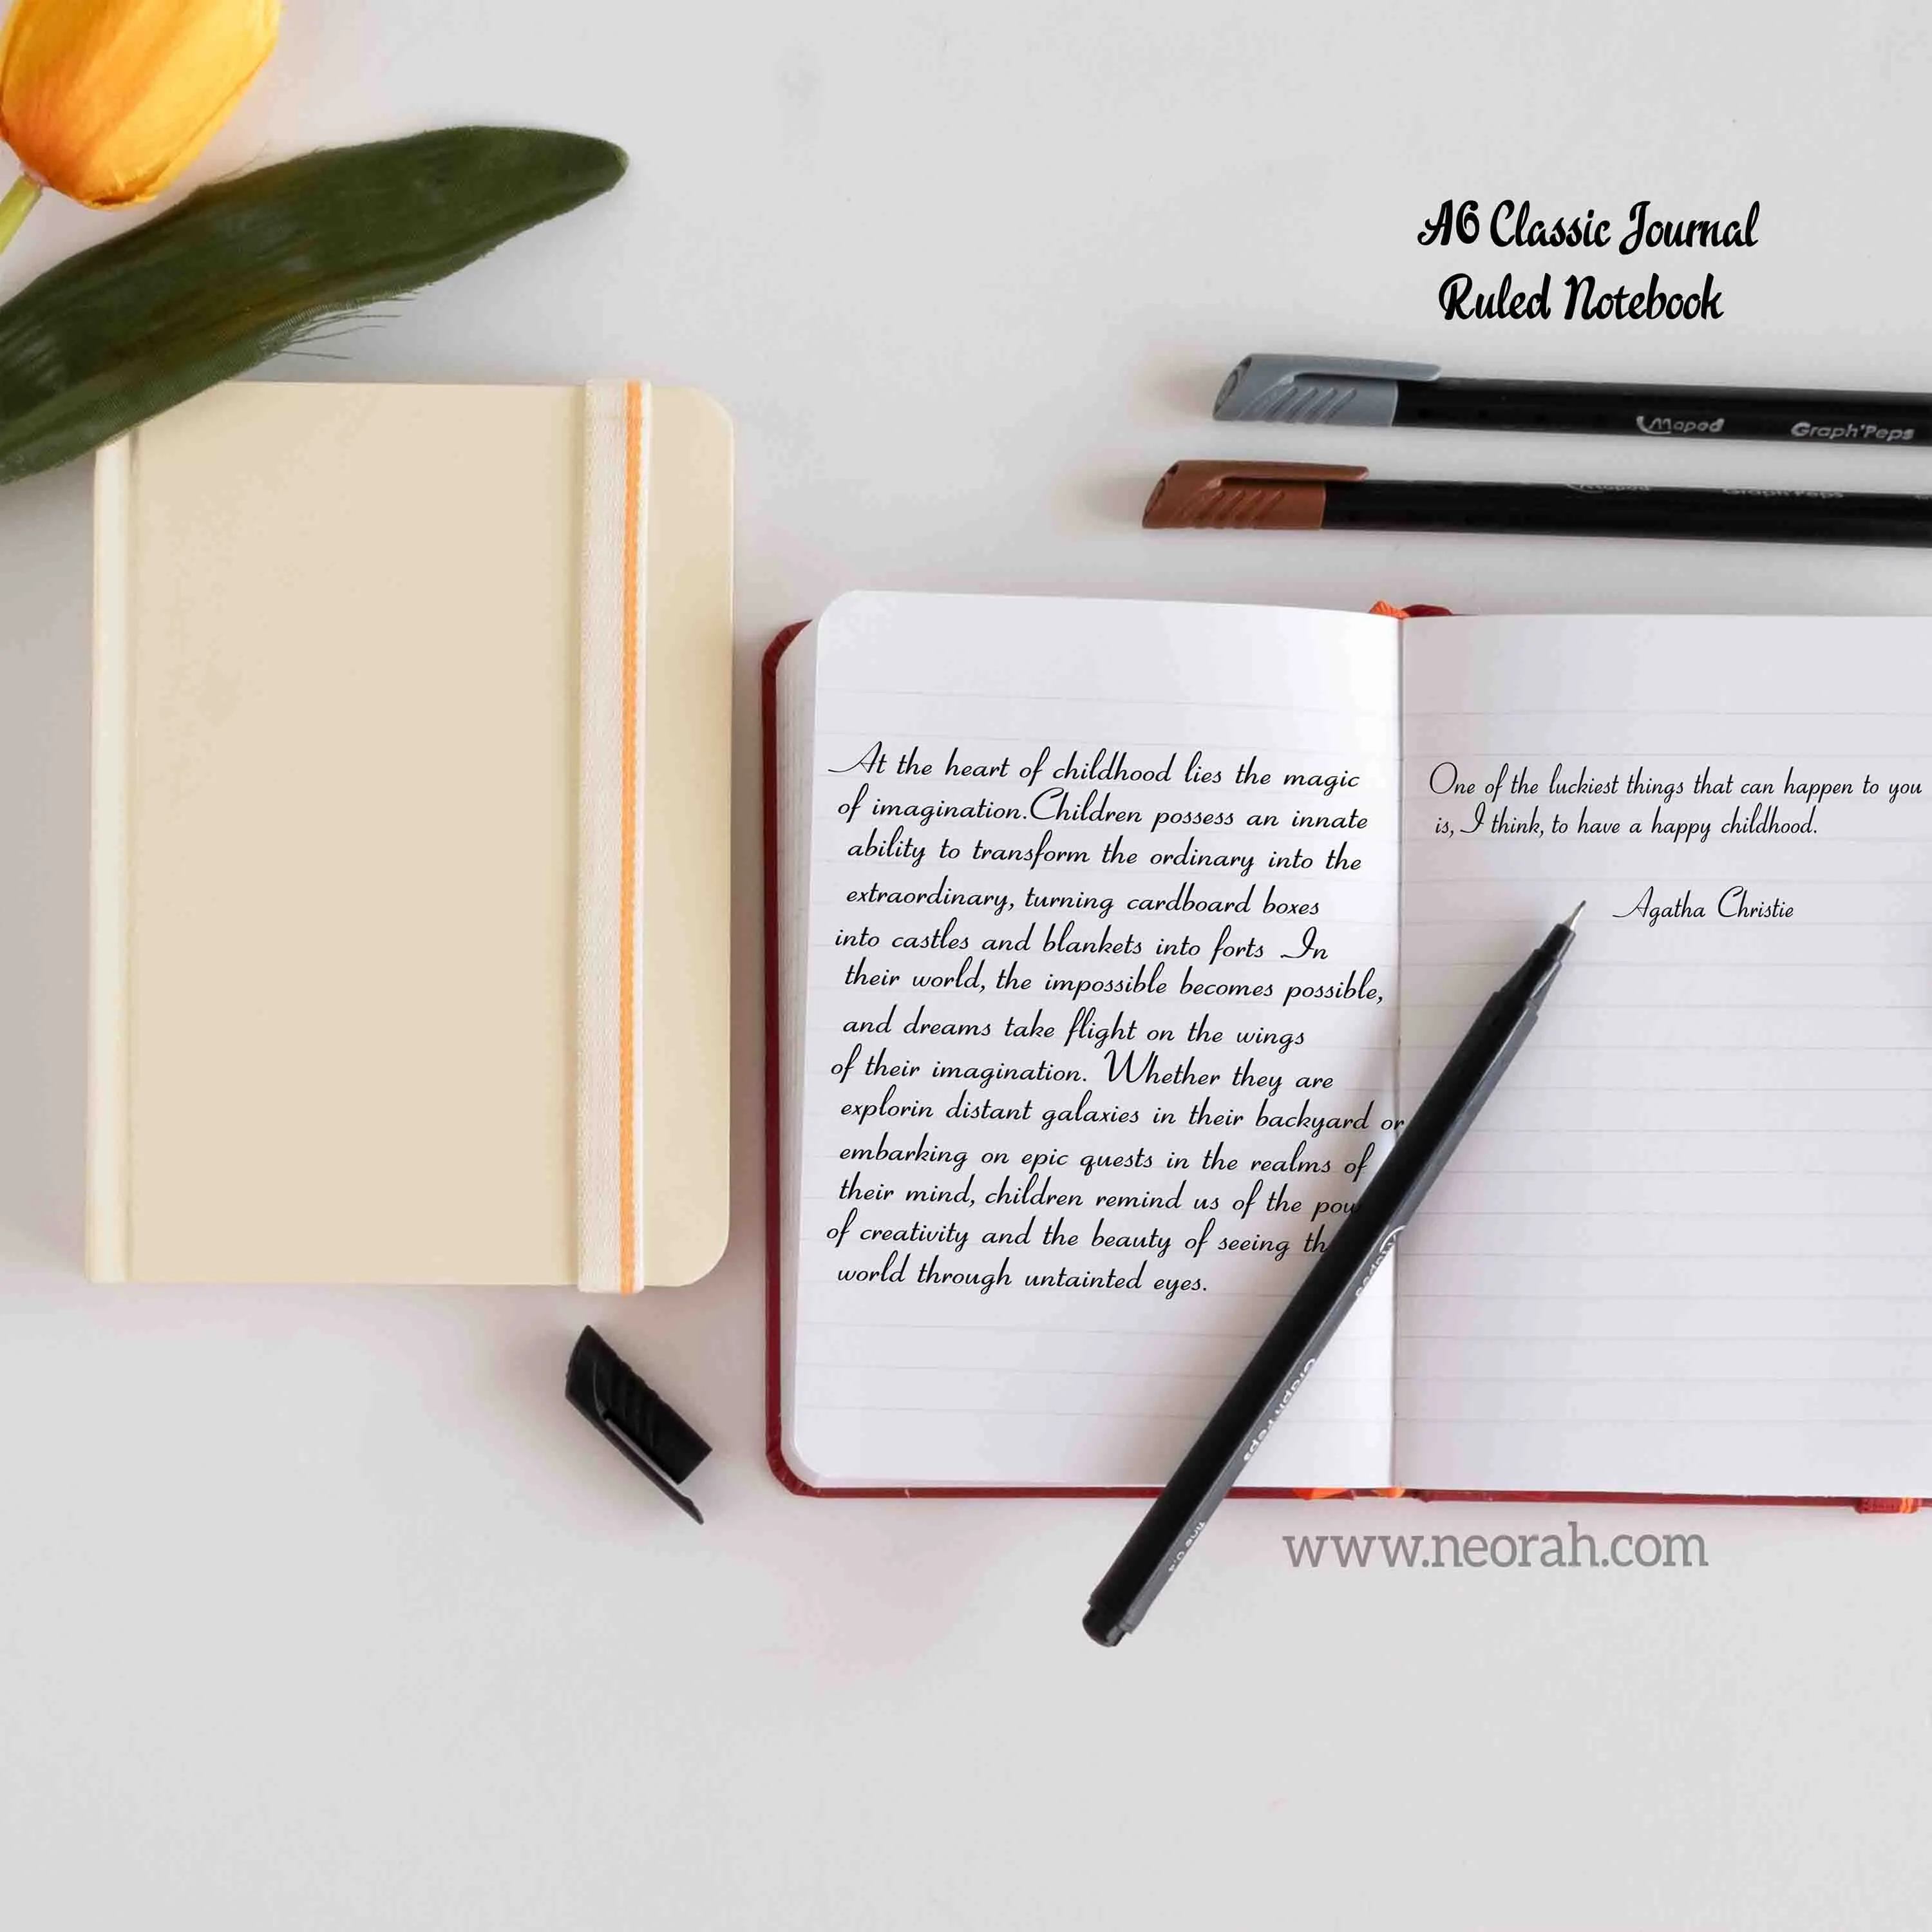 A6 Classic Journal
Ruled Notebook
Maped Graph'Peps
Maped Graph'Peps
At the heart of childhood lies the magic
of imagination.Children possess an innate
ability to transform the ordinary into the
extraordinary, turning cardboard boxes
into castles and blankets into forts In
their world, the impossible becomes possible,
and dreams take flight on the wings
of their imagination. Whether they are
explorin distant galaxies in their backyard or
embarking on epic quests in the realms of
their mind, children remind us of the pow
of creativity and the beauty of seeing th
world through untainted eyes.
One of the luckiest things that can happen to you
is, I think, to have a happy childhood.
Agatha Christie
Maped
Graph'Peps
www.neorah.com